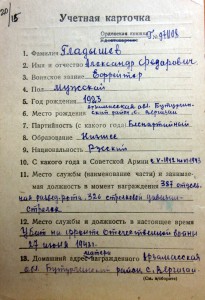 20/15
Учетная карточка
Орденская книжка № 971108
1. Фамилия Гладышев
2. Имя и отчество Александр Федорович
3. Воинское звание Ефрейтор
4. Пол мужской
5. Год рождения 1923
6. Место рождения Арзамасская обл. Бутурлин-
ский район, с. Кершаги
7. Партийность (с какого года) Беспартийный
8. Образование Низшее
9. Национальность Русский
10. С какого года в Советской Армии с 1943
11. Место службы (наименование части) и зани-
маемая должность в момент награждения 387 отдель-
ная разведрота 320 стрелковой дивизии
стрелок
12. Место службы и должность в настоящее время
Убит на фронте Отечественной войны
27 июня 1943 г.
13. Домашний адрес награжденного Арзамасская
обл. Бутурлинский район с. Кершаги